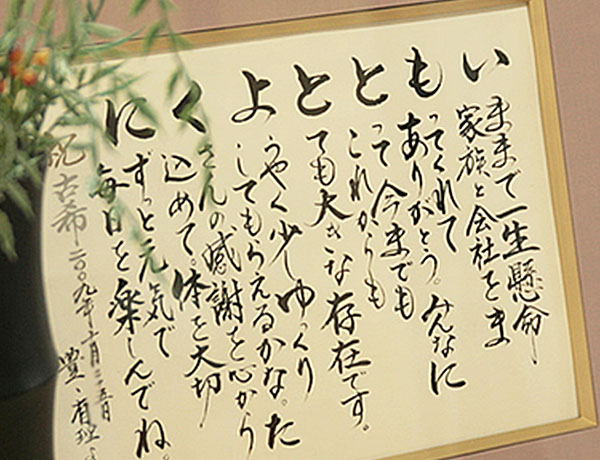 いままで一生懸命
家族と会社をま
もってくれて
ありがとう。みんなに
とって今までも
これからも
とても大きな存在です。
ようやく少しゆっくり
してもらえるかな。た
くさんの感謝を心から
込めて。体を大切
にずっと元気で
毎日を楽しんでね。
祝古希 二〇〇九年
豊・有理